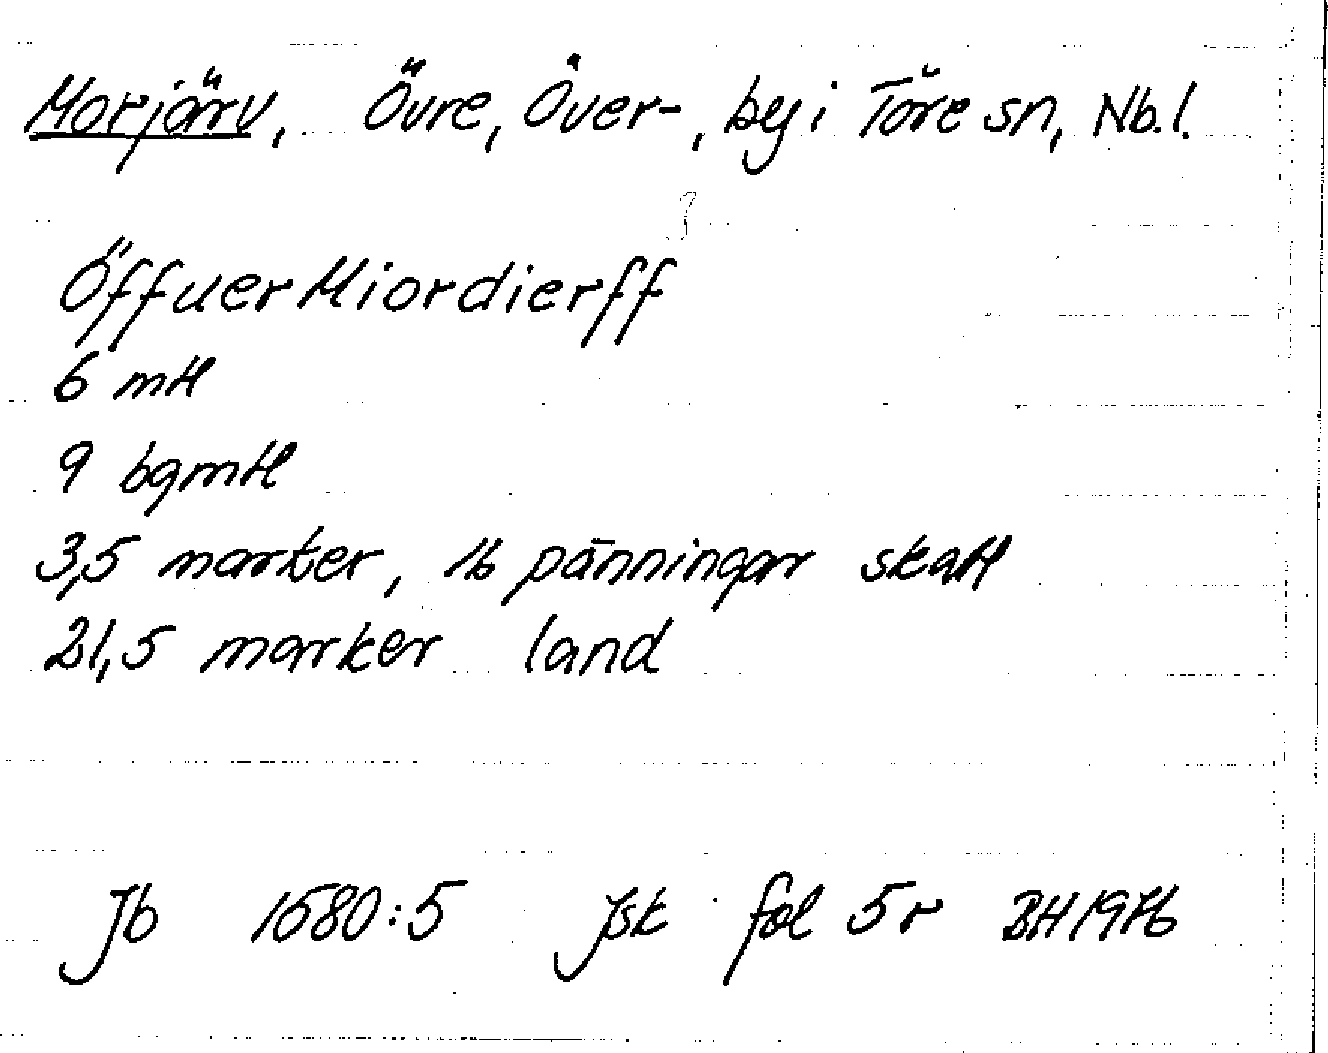 Morjärv, Övre, Över-, by i Töre sn, Nb.l.
Öffuer Miordierff
6 mtl
9 bgmtl
3,5 marker, 16 pänningar skatt
21,5 marker land
Jb 1580:5 Jsk fol 5r BH 1976